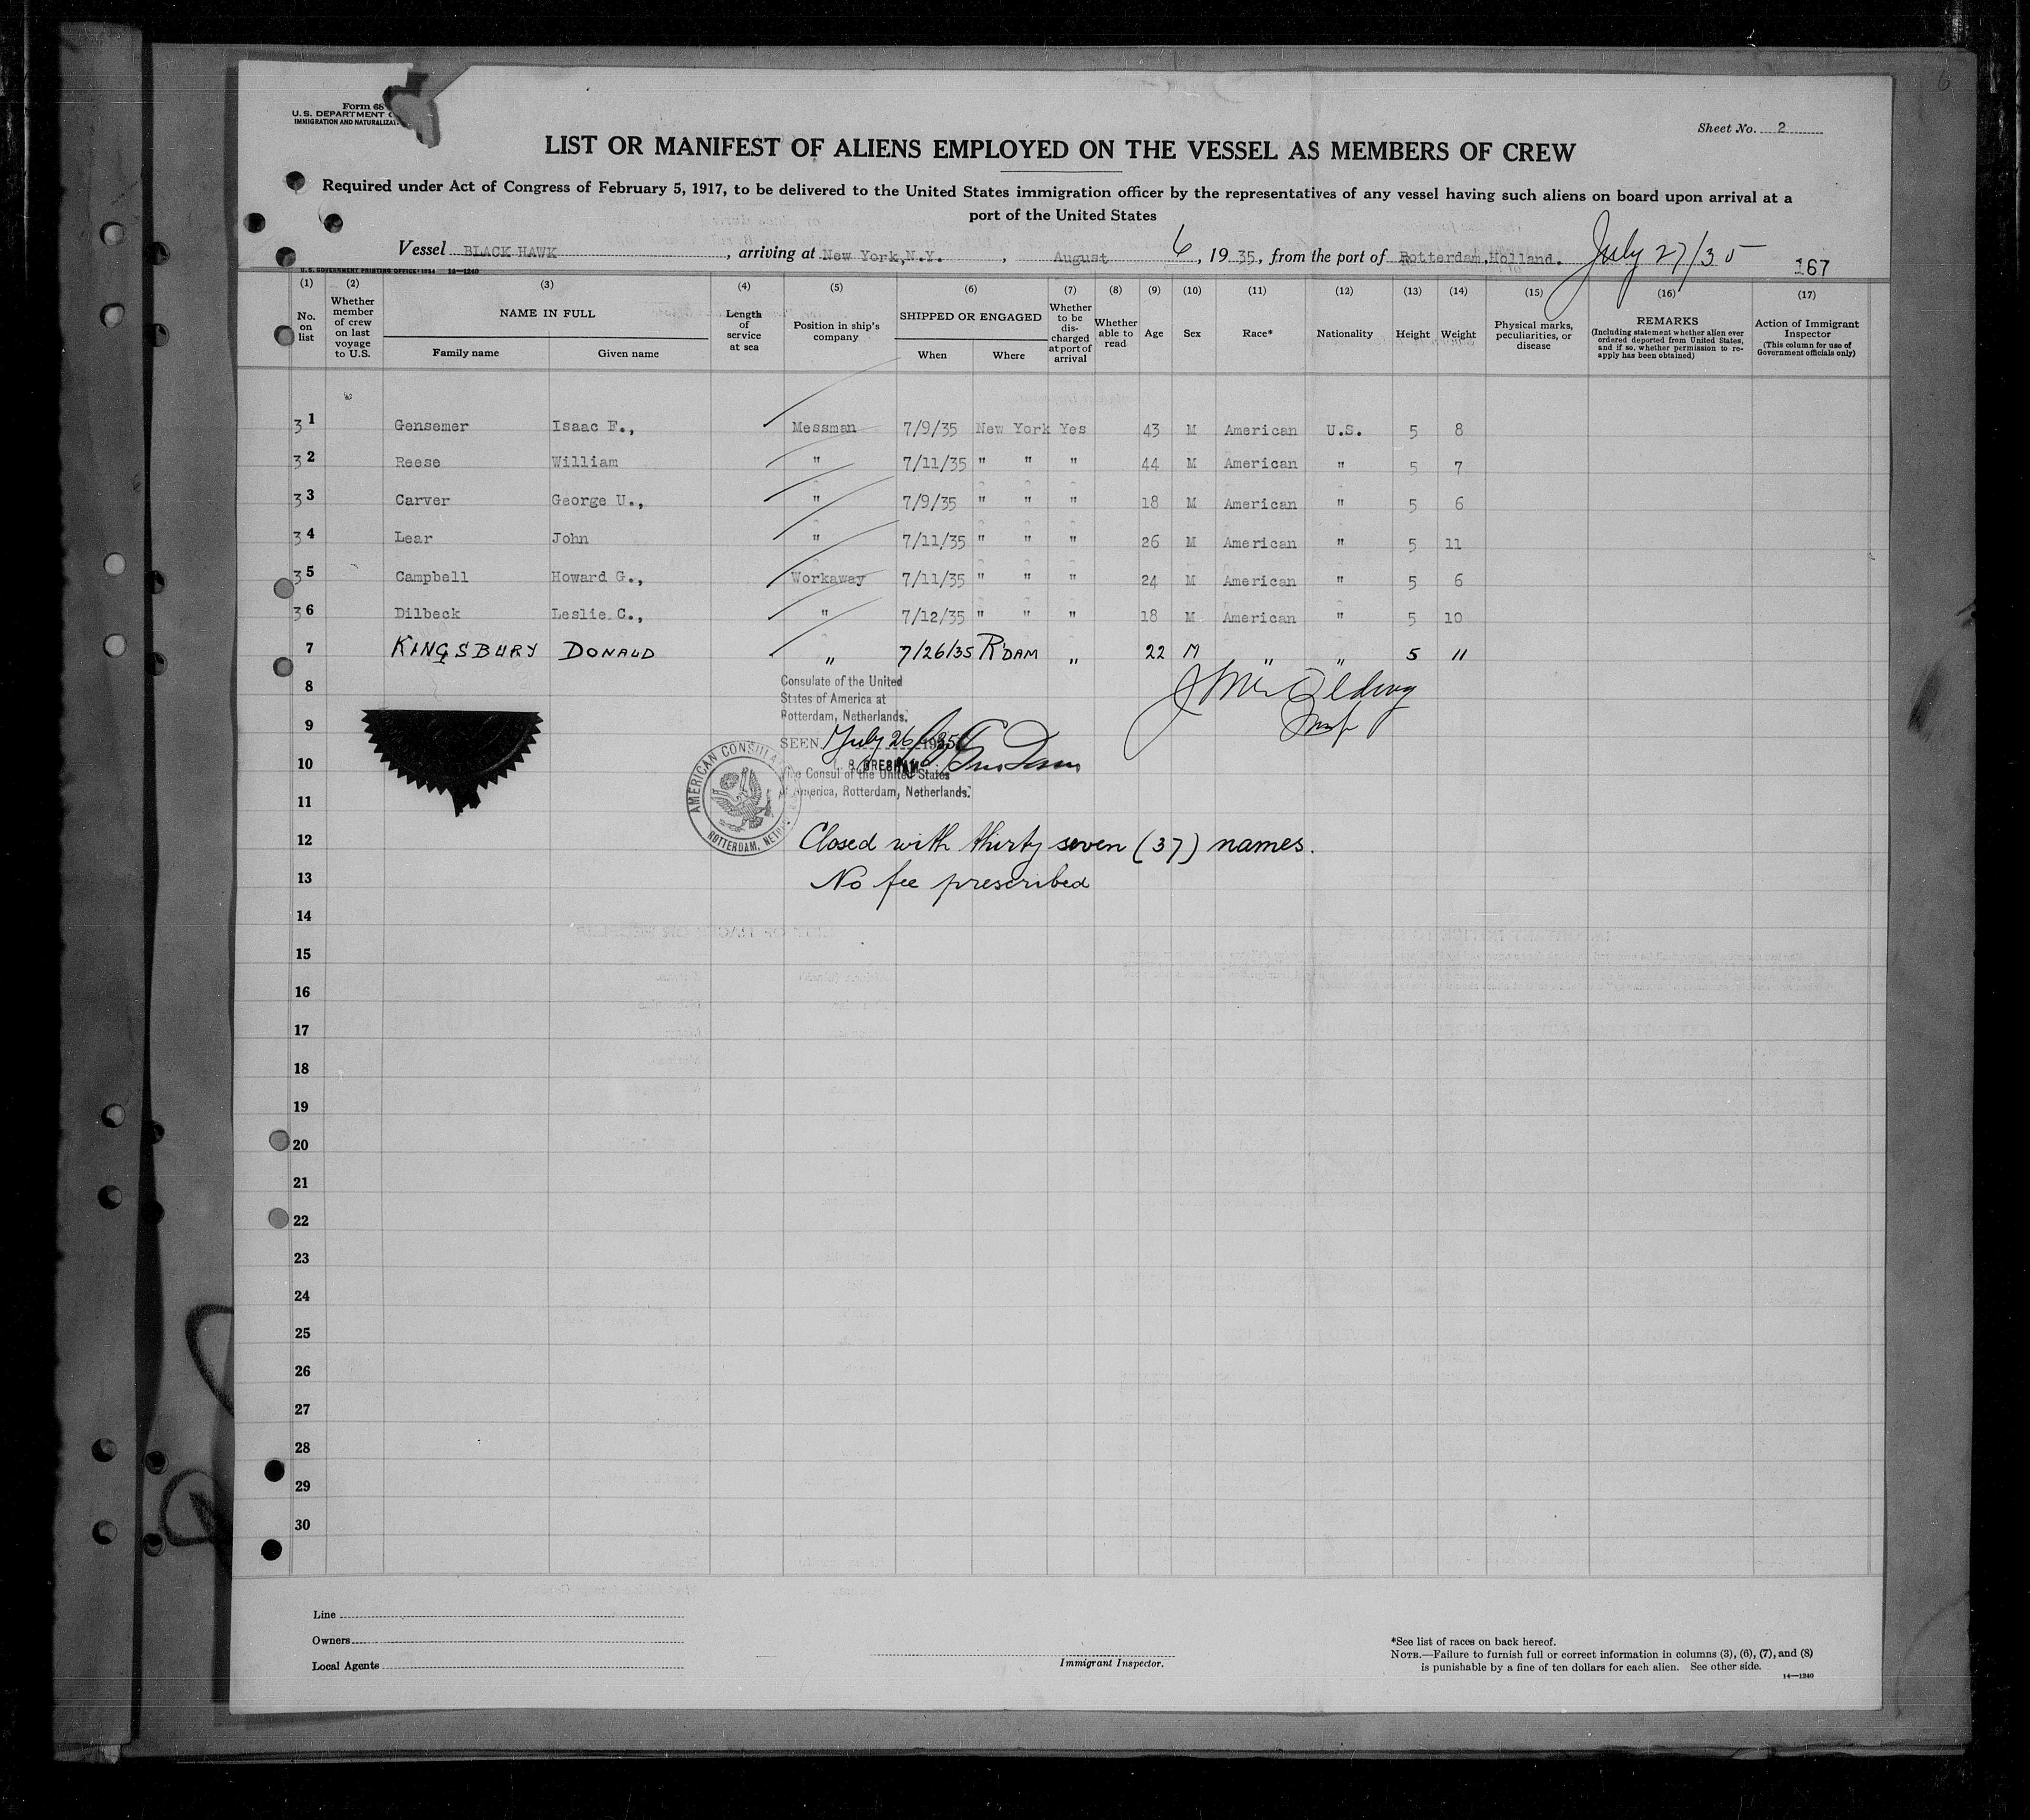 Form 68
U. S. DEPARTMENT
IMMIGRATION AND
Sheet No. 2
LIST OR MANIFEST OF ALIENS EMPLOYED ON THE VESSEL AS MEMBERS OF CREW
Required under Act of Congress of February 5, 1917, to be delivered to the United States immigration officer by the representatives of any vessel having such aliens on board upon arrival at a
port of the United States
Vessel BLACK HAWK, arriving at New York, N.Y., August 6, 1935, from the port of Rotterdam, Holland. July 27/35
167
U. S. GOVERNMENT PRINTING OFFICE: 1934 14—1240
(1) No. on list
(2) Whether member of crew on last voyage to U.S.
(3) NAME IN FULL Family name Given name
(4) Length of service at sea
(5) Position in ship's company
(6) SHIPPED OR ENGAGED When Where
(7) Whether to be discharged at port of arrival
(8) Whether able to read
(9) Age
(10) Sex
(11) Race*
(12) Nationality
(13) Height
(14) Weight
(15) Physical marks, peculiarities, or disease
(16) REMARKS (Including statement whether alien ever ordered deported from United States, and if so, whether permission to re-apply has been obtained)
(17) Action of Immigrant Inspector (This column for use of Government officials only)
31 Gensemer Isaac F., Messman 7/9/35 New York Yes 43 M American U.S. 5 8
32 Reese William " 7/11/35 " " " 44 M American " 5 7
33 Carver George U., " 7/9/35 " " " 18 M American " 5 6
34 Lear John " 7/11/35 " " " 26 M American " 5 11
35 Campbell Howard G., Workaway 7/11/35 " " " 24 M American " 5 6
36 Dilbeck Leslie C., " 7/12/35 " " " 18 M American " 5 10
7 KINGSBURY DONALD " 7/26/35 R'DAM " 22 M " " 5 11
8
Consulate of the United
States of America at
Rotterdam, Netherlands.
9
SEEN July 26 1935
10
GRESHAM
Vice Consul of the United States
of America, Rotterdam, Netherlands.
AMERICAN CONSULA
ROTTERDAM, NETH
11
12
Closed with thirty seven (37) names.
13
No fee prescribed
14
15
16
17
18
19
20
21
22
23
24
25
26
27
28
29
30
Line
Owners
Local Agents
Immigrant Inspector.
*See list of races on back hereof.
NOTE.—Failure to furnish full or correct information in columns (3), (6), (7), and (8)
is punishable by a fine of ten dollars for each alien. See other side.
14—1240